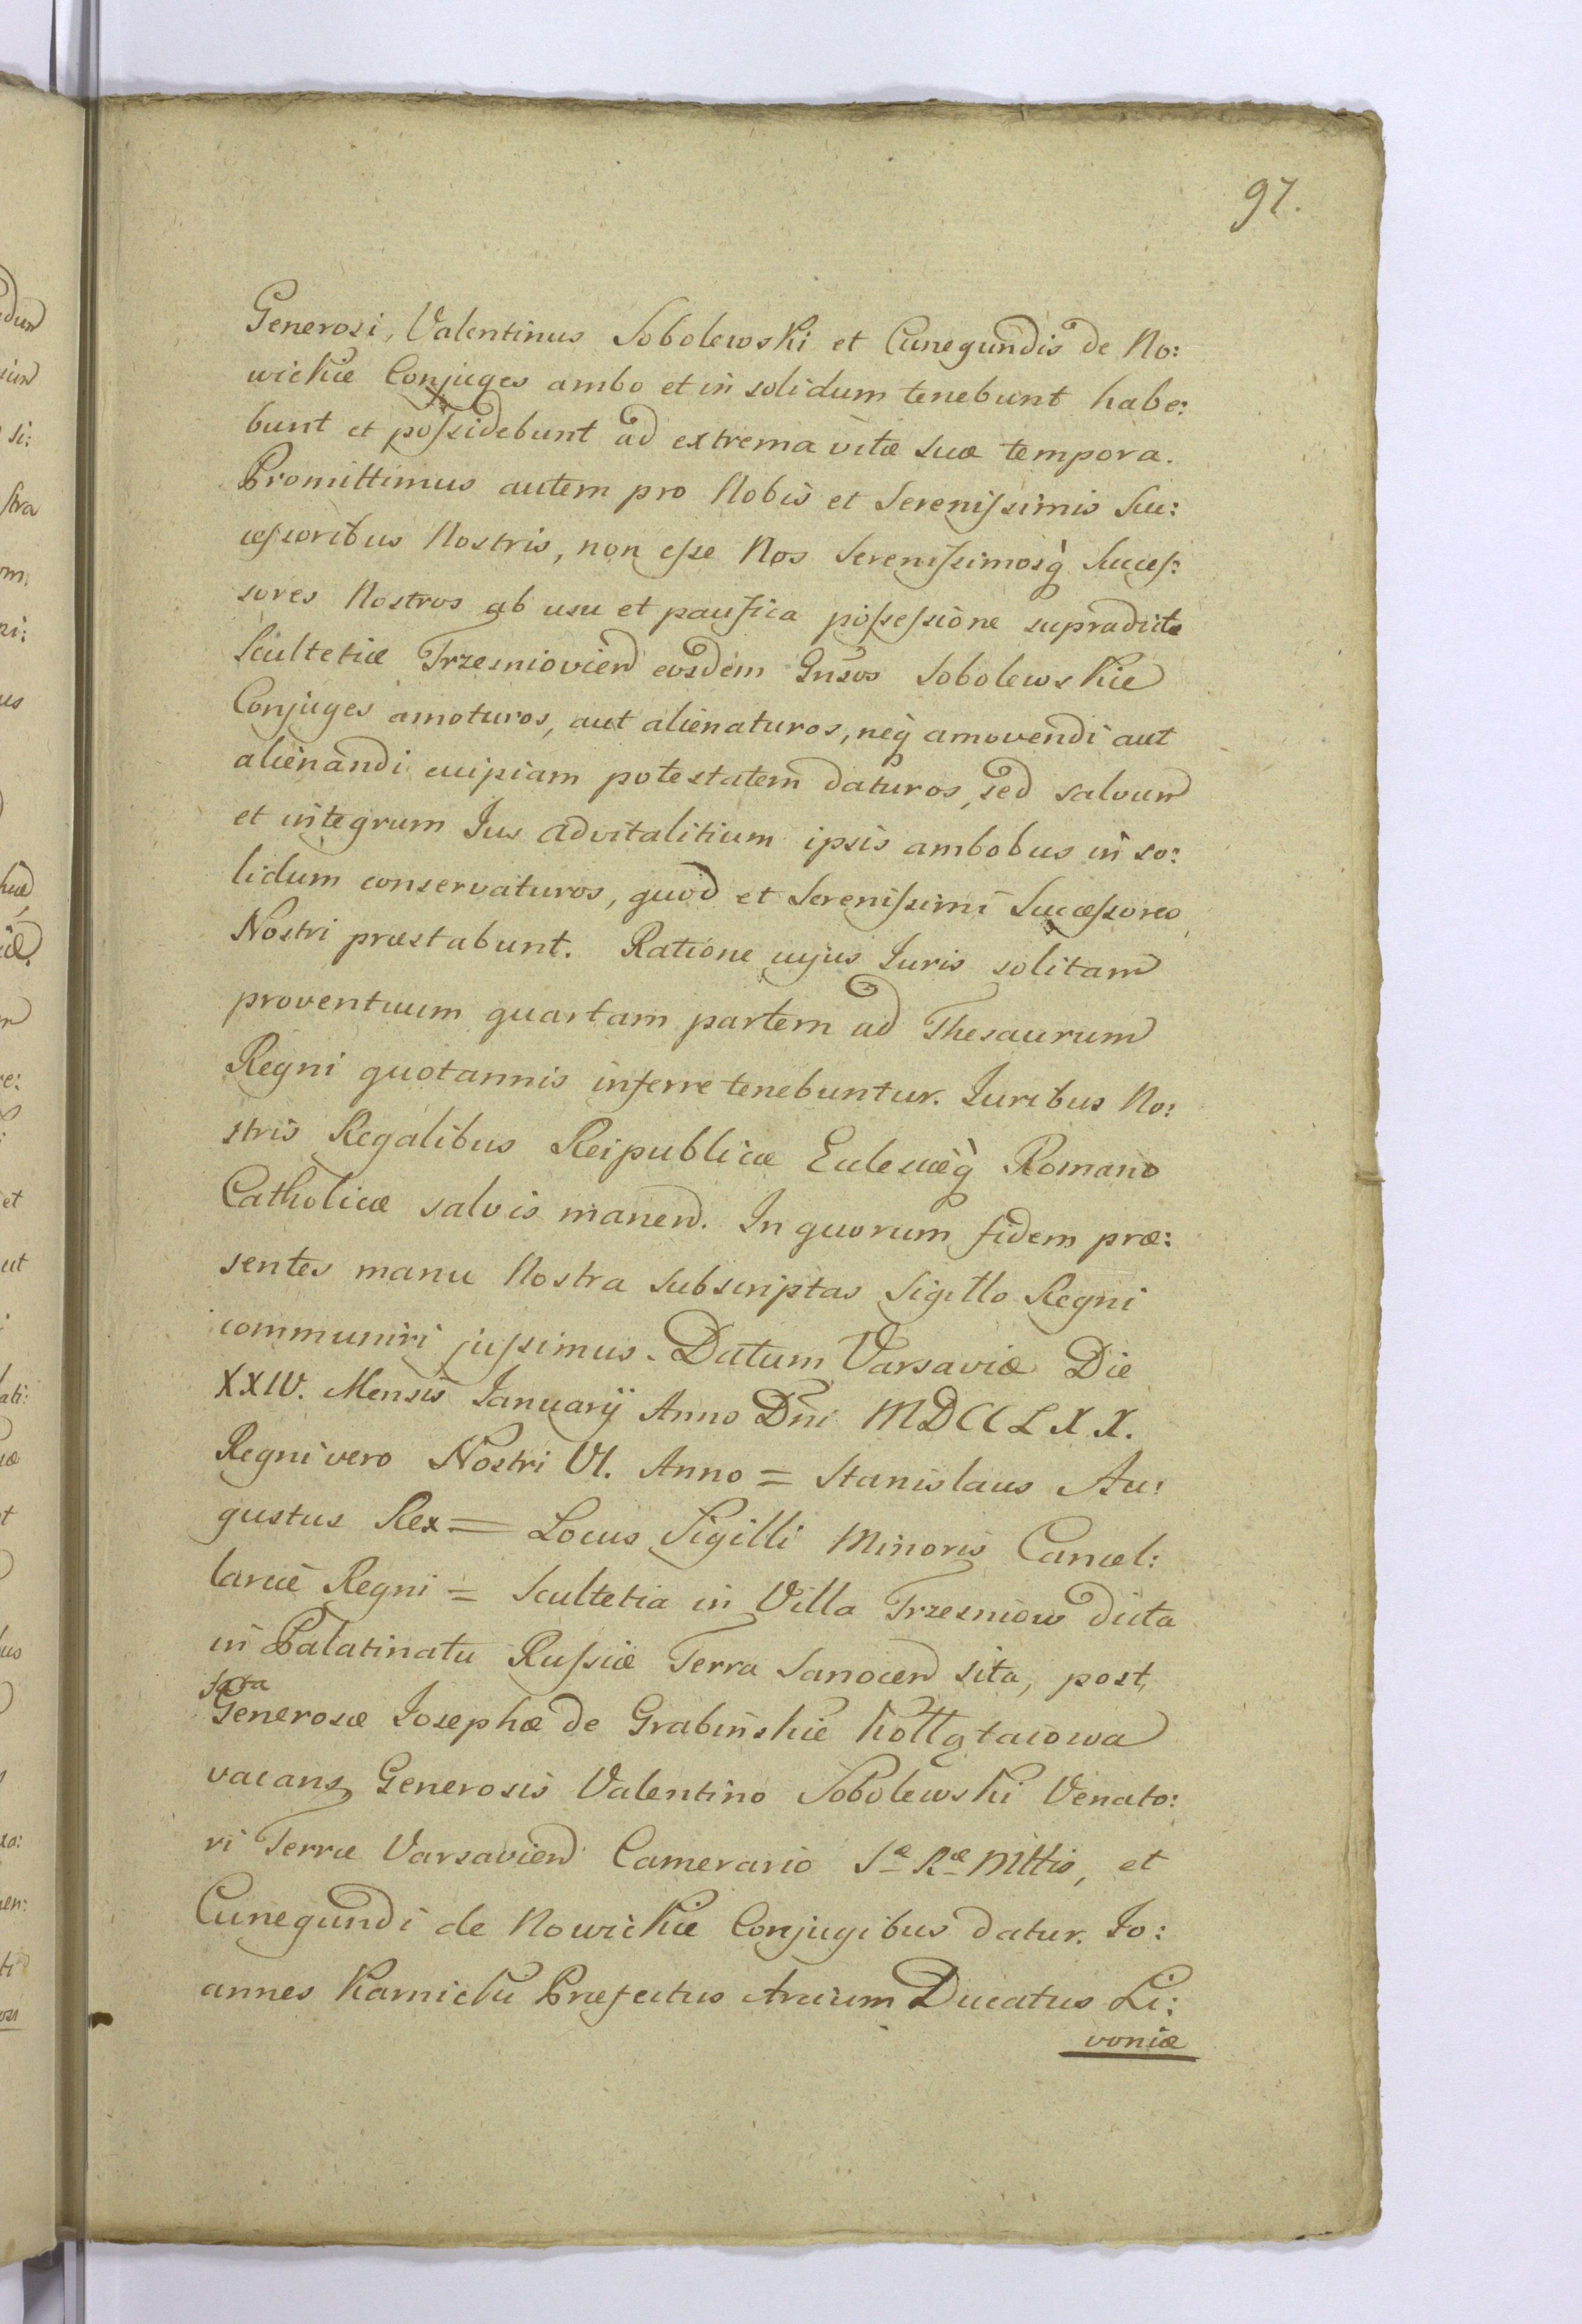 97.
Generosi, Valentinus Sobolewski et Cunegundis de No:
wickie Conjuges ambo et in solidum tenebunt habe:
bunt et poſsidebunt ad extrema vitæ suæ tempora.
Promittimus autem pro Nobis et Sereniſsimis Suc:
ceſsoribus Nostris, non eſse Nos Sereniſsimosq̀ Succeſ:
sores Nostros ab usu et pacifica poſseſsione supradictæ
Scultetiæ Trzesniovien eosdem Gn̄sos Sobolewskie
Conjuges amoturos, aut alienaturos, neq̀ amovendi aut
alienandi cuipiam potestatem daturos, sed salvum
et integrum Jus advitalitium ipsis ambobus in so:
lidum conservaturos, quod et Sereniſsimi Succeſsores
Nostri præstabunt. Ratione cujus Juris solitam
proventuum quartam partem ad Thesaurum
Regni quotannis inferre tenebuntur. Juribus No:
stris Regalibus Reipublicæ Eclesiæq̀ Romano
Catholicæ salvis manen. In quorum fidem præ:
sentes manu Nostra subscriptas Sigillo Regni
communiri juſsimus. Datum Varsaviæ Die
XXIV. Mensis Januarij Anno Dn̄i MDCCLXX.
Regni vero Nostri VI. Anno = Stanislaus Au:
gustus Rex = Locus Sigilli Minoris Cancel:
lariæ Regni = Scultetia in Villa Trzesniow dicta
in Palatinatu Ruſsiæ Terra Sanocen sita, post
fata
Generosæ Josephæ de Grabińskie Kołłątaiowa
vacans, Generosis Valentino Sobolewski Venato:
ri Terræ Varsavien Camerario Sæ Ræ Mttis, et
Cunegundi de Nowickie Conjugibus datur. Jo:
annes Karnicki Præfectus Arcium Ducatus Li:
voniæ